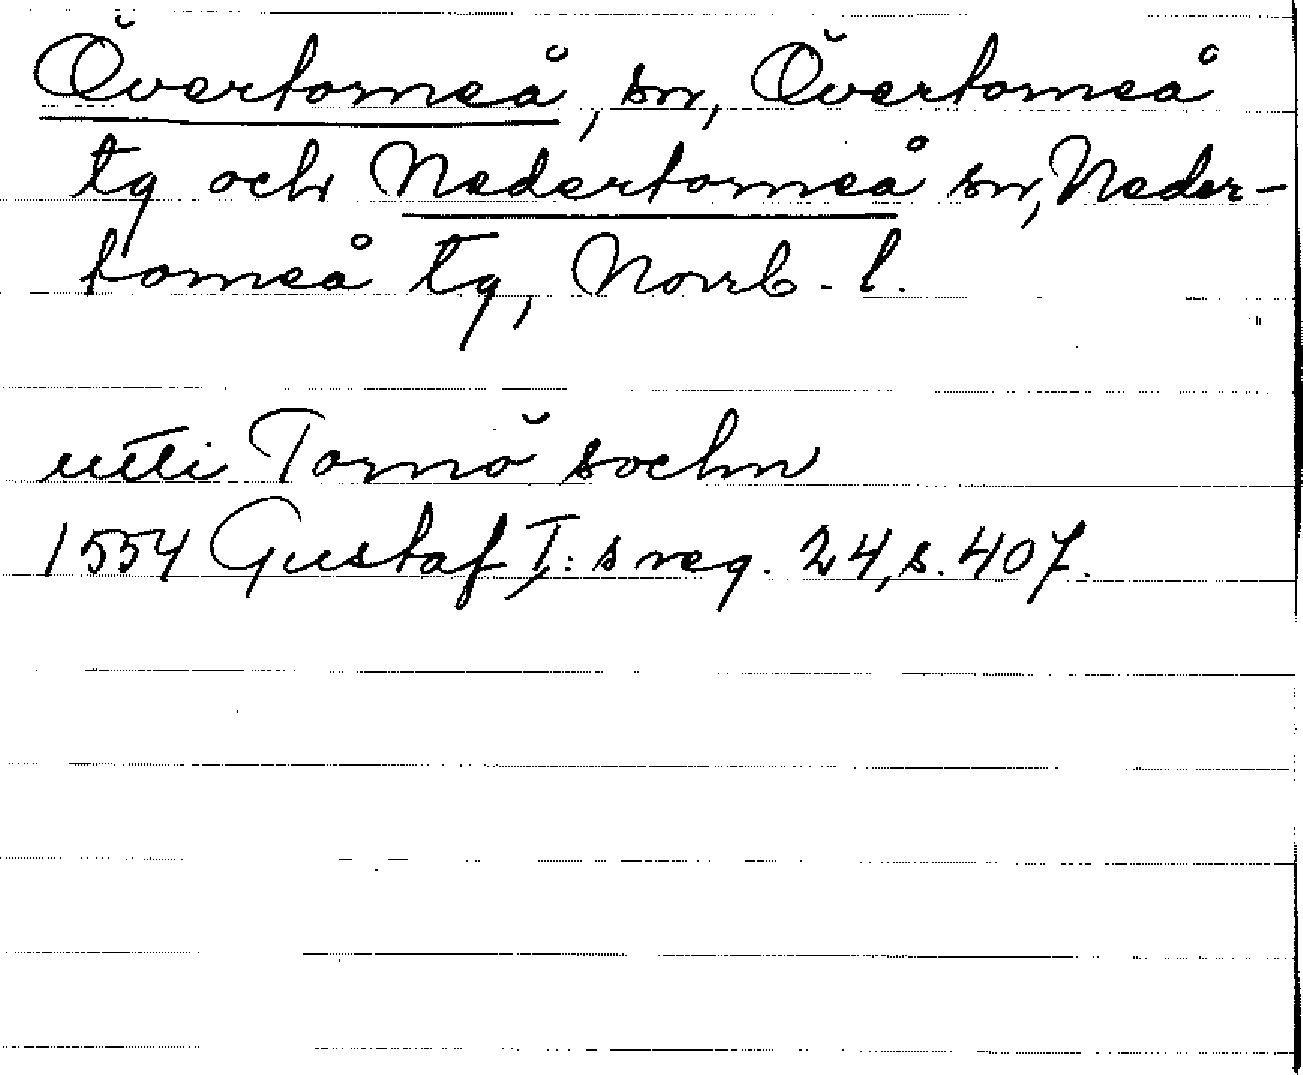 Övertorneå, sn, Övertorneå
tg och Nedertorneå sn, Neder-
torneå tg, Norrb. l.
utti Tornö sochn
1554 Gustaf I:s reg. 24, s. 407.